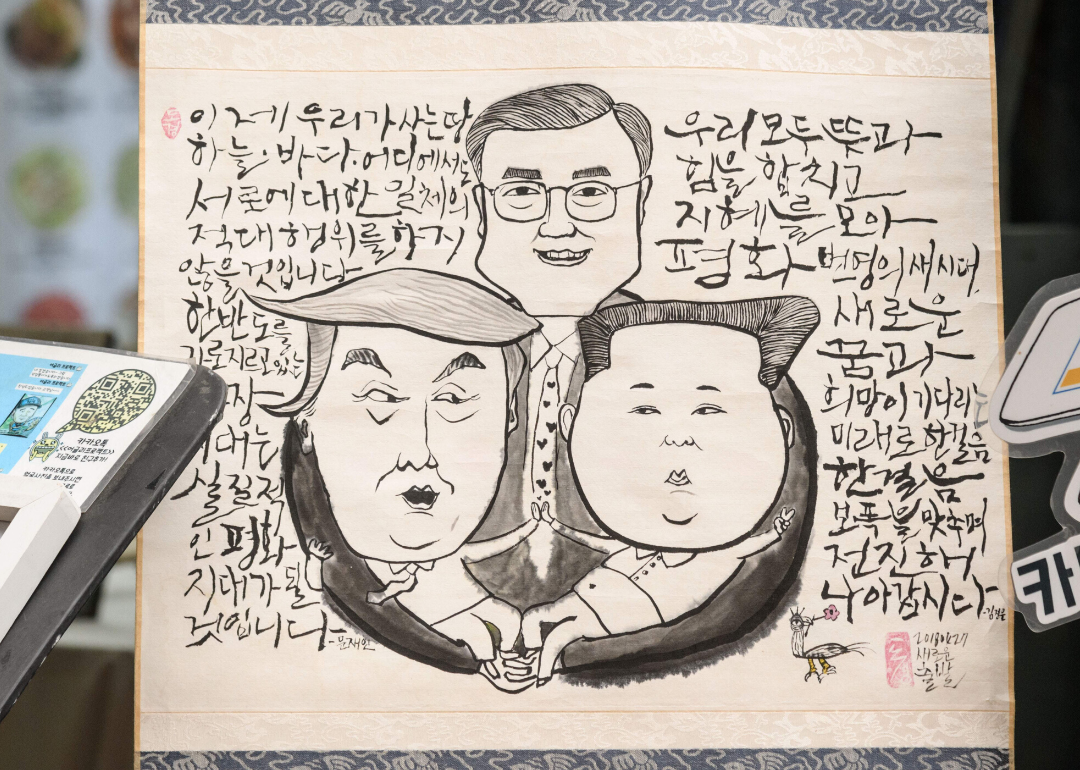 이제 우리가 사는 땅
하늘, 바다, 어디에서도
서로에 대한 일체의
적대행위를 하지
않을 것입니다
한반도를
가로지르고 있는
장
대는
실질적
인 평화
지대가 될
것입니다
-문재인
우리 모두 뚜과
힘을 합치고
지혜를 모아
평화 번영의 새시대,
새로운
꿈과
희망이 기다리
미래로 한걸음
한걸음
보폭을 맞추며
전진해
나아갑시다
-김정은
2018 04 27
새로운
출발
카카오톡
<<어글리프로젝트>>
지금바로 친구추가!
카카오톡으로
카